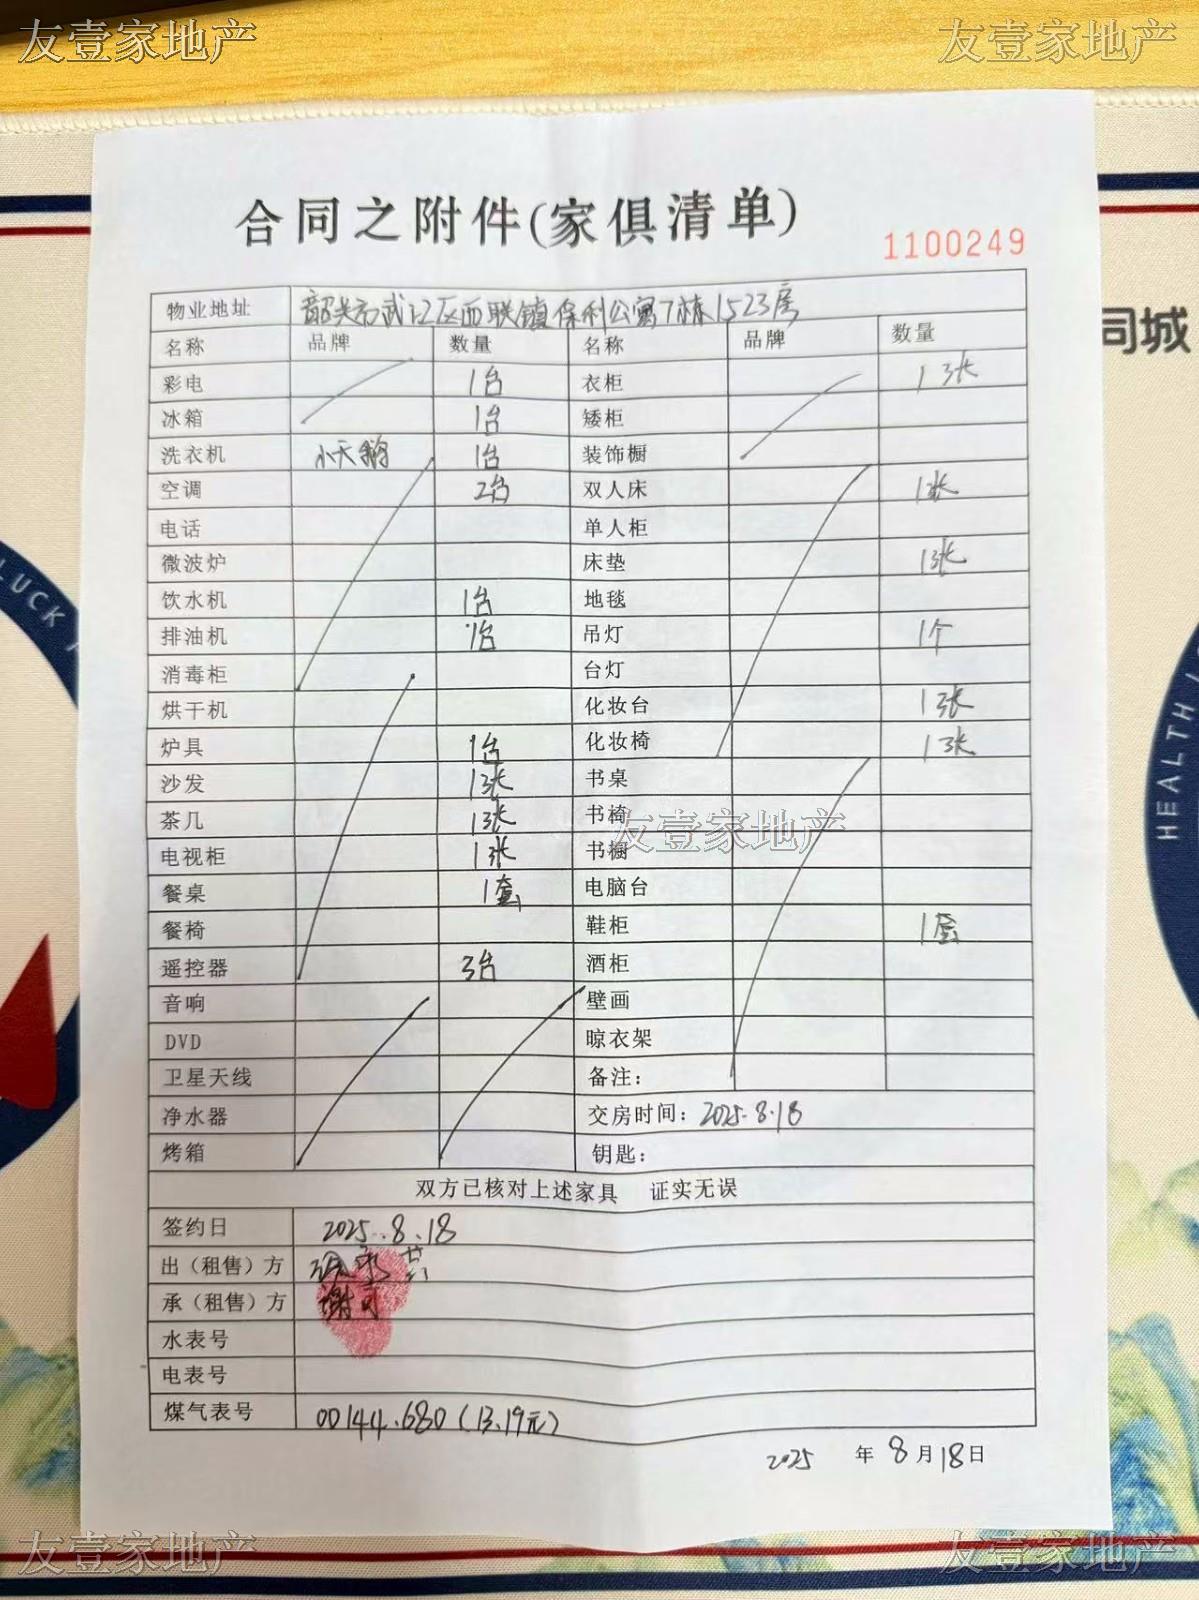 友壹家地产 友壹家地产
合同之附件(家俱清单)
1100249
物业地址 韶关市武江区西联镇保利公寓7栋1523房
名称 品牌 数量 名称 品牌 数量
彩电 1台 衣柜 1张
冰箱 1台 矮柜
洗衣机 小天鹅 1台 装饰橱
空调 2台 双人床 1张
电话 单人柜
微波炉 床垫 1张
饮水机 1台 地毯
排油机 1台 吊灯 1个
消毒柜 台灯
烘干机 化妆台 1张
炉具 1台 化妆椅 1张
沙发 1张 书桌
茶几 1张 书椅
友壹家地产
电视柜 1张 书橱
餐桌 1套 电脑台
餐椅 鞋柜 1套
遥控器 3台 酒柜
音响 壁画
DVD 晾衣架
卫星天线 备注：
净水器 交房时间：2025.8.18
烤箱 钥匙：
双方已核对上述家具 证实无误
签约日 2025.8.18
出（租售）方
承（租售）方 谢可
水表号
电表号
煤气表号 00144.680(13.19元)
2025 年 8 月 18 日
同城
LUCK
HEALTH
友壹家地产 友壹家地产